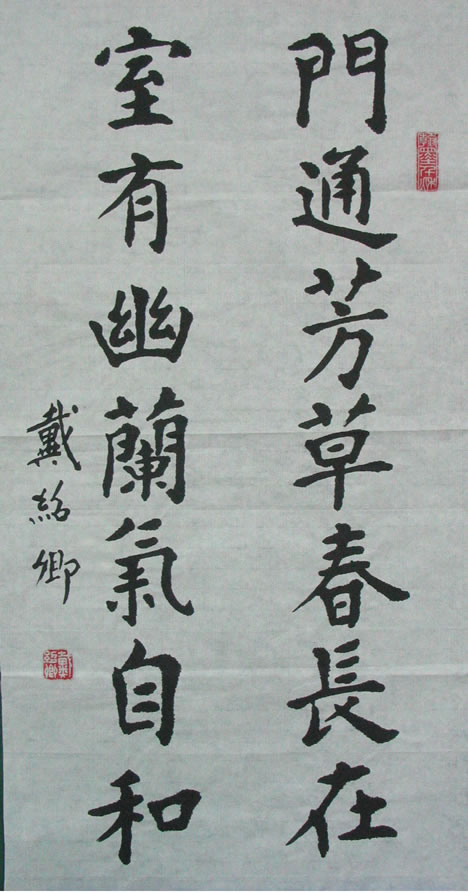 門通芳草春長在
室有幽蘭氣自和
戴紹卿